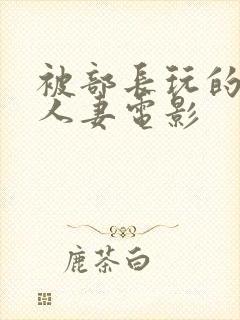 被部长玩的
人妻电影
鹿茶白